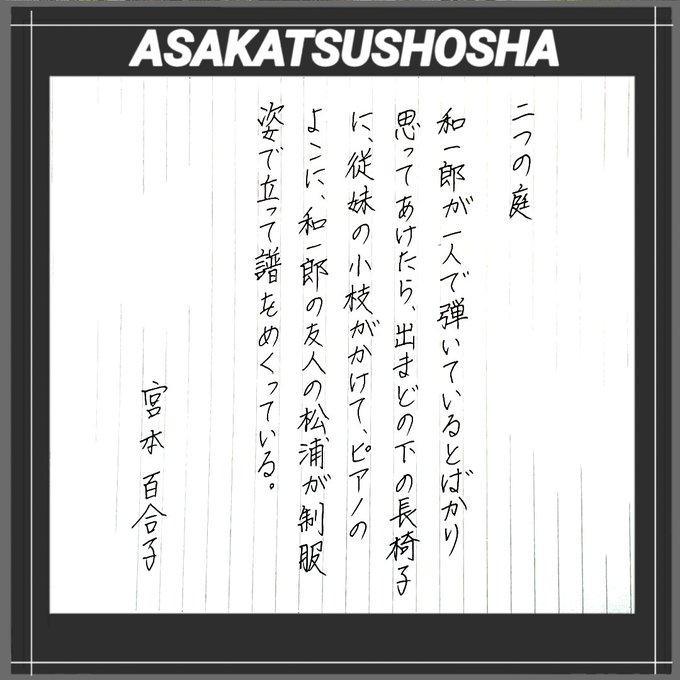 ASAKATSUSHOSHA
二つの庭
和一郎が一人で弾いているとばかり
思ってあけたら、出まどの下の長椅子
に、従妹の小枝がかけて、ピアノの
よこに、和一郎の友人の松浦が制服
姿で立って譜をめくっている。
宮本百合子